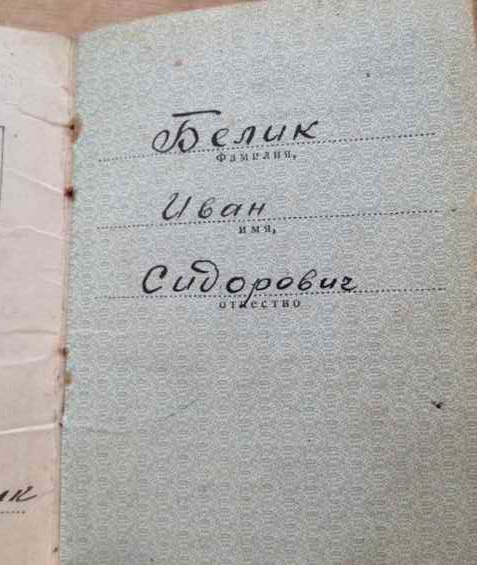 Белик
фамилия,
Иван
имя,
Сидорович
отчество
ик